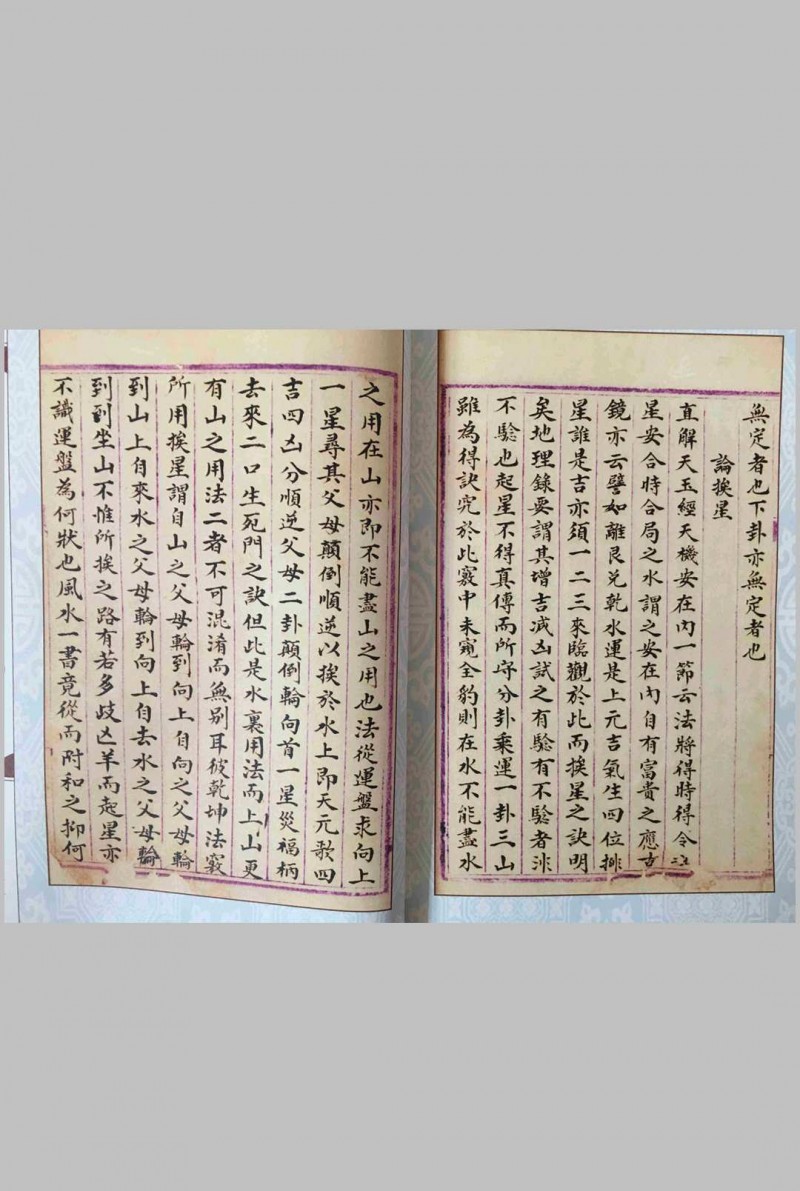 無定者也下卦亦無定者也
論挨星
直解天玉經天機安在內一節云法將得時得令之
星安合時合局之水謂之安在內自有富貴之應古
鏡亦云譬如離艮兌乾水運是上元吉氣生四位排
星誰是吉亦須一二三來臨觀於此而挨星之訣明
矣地理錄要謂其增吉減凶試之有驗有不驗者非
不驗也起星不得真傳而所守分卦乘運一卦三山
雖為得訣究於此竅中未窺全豹則在水不能盡水
之用在山亦即不能盡山之用也法從運盤求向上
一星尋其父母顛倒順逆以挨於水上即天元歌四
吉四凶分順逆父母二卦顛倒輪向首一星災福柄
去來二口生死門之訣但此是水裏用法而上山更
有山之用法二者不可混淆而無別耳彼乾坤法竅
所用挨星謂自山之父母輪到向上自向之父母輪
到山上自來水之父母輪到向上自去水之父母輪
到到坐山不惟所挨之路有若多歧亡羊而起星亦
不識運盤為何狀也風水一書竟從而附和之抑何